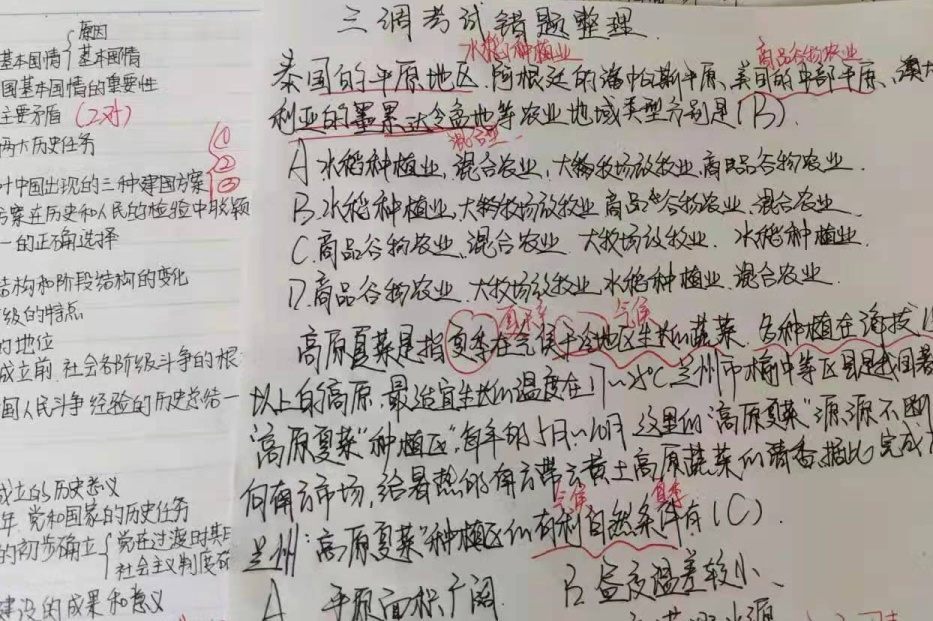 原因
基本国情 基本国情
国基本国情的重要性
主要矛盾 (2对)
两大历史任务
①
②
③
中国出现的三种建国方案
方案在历史和人民的检验中
一的正确选择
结构和阶段结构的变化
级的特点
的地位
成立前 社会各阶级斗争的根
国人民斗争经验的历史总结一
成立的历史意义
年 党和国家的历史任务
的初步确立 党在过渡时期
社会主义制度确
建设的成果和意义
三调考试错题整理
水稻种植业
商品谷物农业
泰国的平原地区、阿根廷的潘帕斯平原、美国的中部平原、澳大
利亚的墨累达令盆地等农业地域类型分别是(B).
混合型一
A 水稻种植业、混合农业、大牧场放牧业、商品谷物农业.
B.水稻种植业,大牧场放牧业 商品谷物农业、混合农业
C.商品谷物农业、混合农业 大牧场放牧业. 水稻种植业.
D.商品谷物农业、大牧场放牧业 水稻种植业、混合农业.
夏季
气候
高原夏菜是指夏季在气候干冷地区生长的蔬菜. 多种植在海拔1
以上的高原,最适宜生长的温度在17~25℃ 兰州市榆中等区县是我国著
“高原夏菜”种植区,每年的5月~10月 这里的“高原夏菜”源源不断
向南方市场,给暑热的南方带去黄土高原蔬菜的清香,据此完成
气候 夏季
兰州“高原夏菜”种植区的有利自然条件有(C).
A 平原面积广阔 B 昼夜温差较小
水源